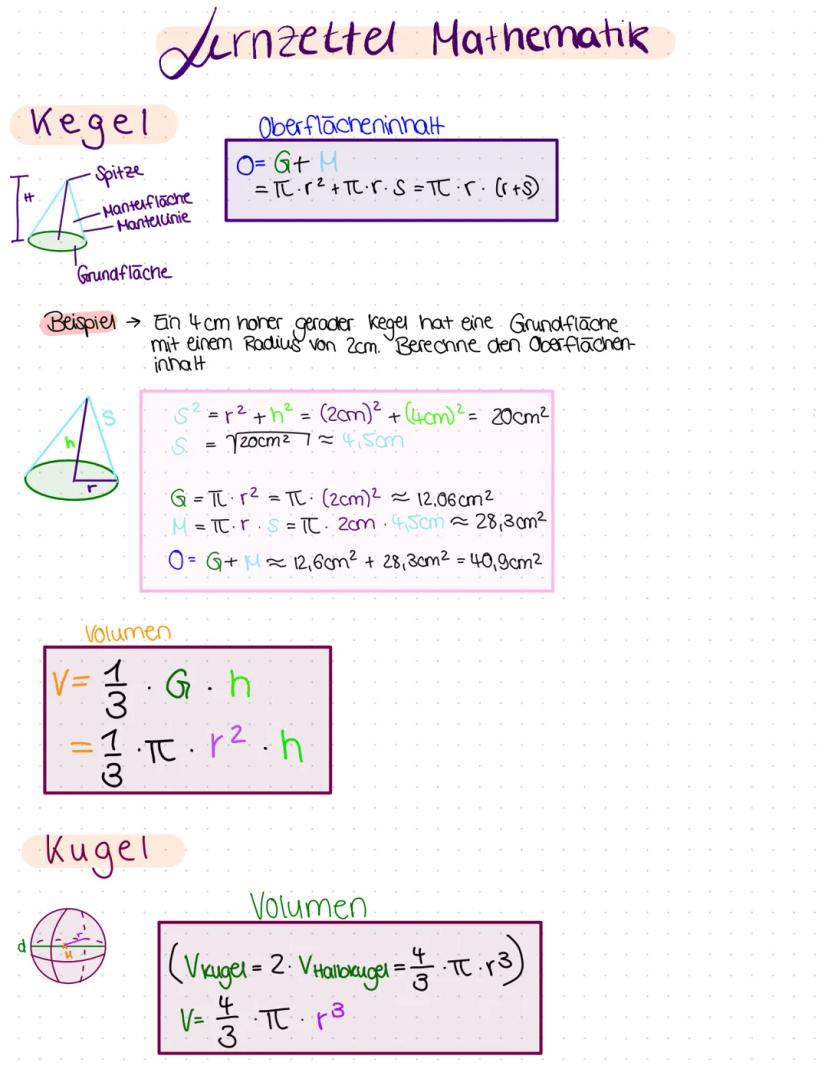 Lernzettel Mathematik
Kegel
Oberflächeninhalt
O= G+ M
= π·r²+π·r·s =π·r·(r+s)
H
Spitze
Mantelfläche
Mantellinie
Grundfläche
Beispiel → Ein 4cm hoher gerader Kegel hat eine Grundfläche
mit einem Radius von 2cm. Berechne den Oberflächen-
inhalt
h
s
r
S² = r² + h² = (2cm)² + (4cm)² = 20cm²
S = √20cm² ≈ 4,5cm
G = π· r² = π· (2cm)² ≈ 12,06cm²
M = π· r · s = π· 2cm · 4,5cm ≈ 28,3cm²
O = G + M ≈ 12,6cm² + 28,3cm² = 40,9cm²
Volumen
V= 1/3 · G · h
= 1/3 · π · r² · h
Kugel
d
r
M
Volumen
(VKugel = 2· VHalbkugel = 4/3 · π · r³)
V= 4/3 · π · r³